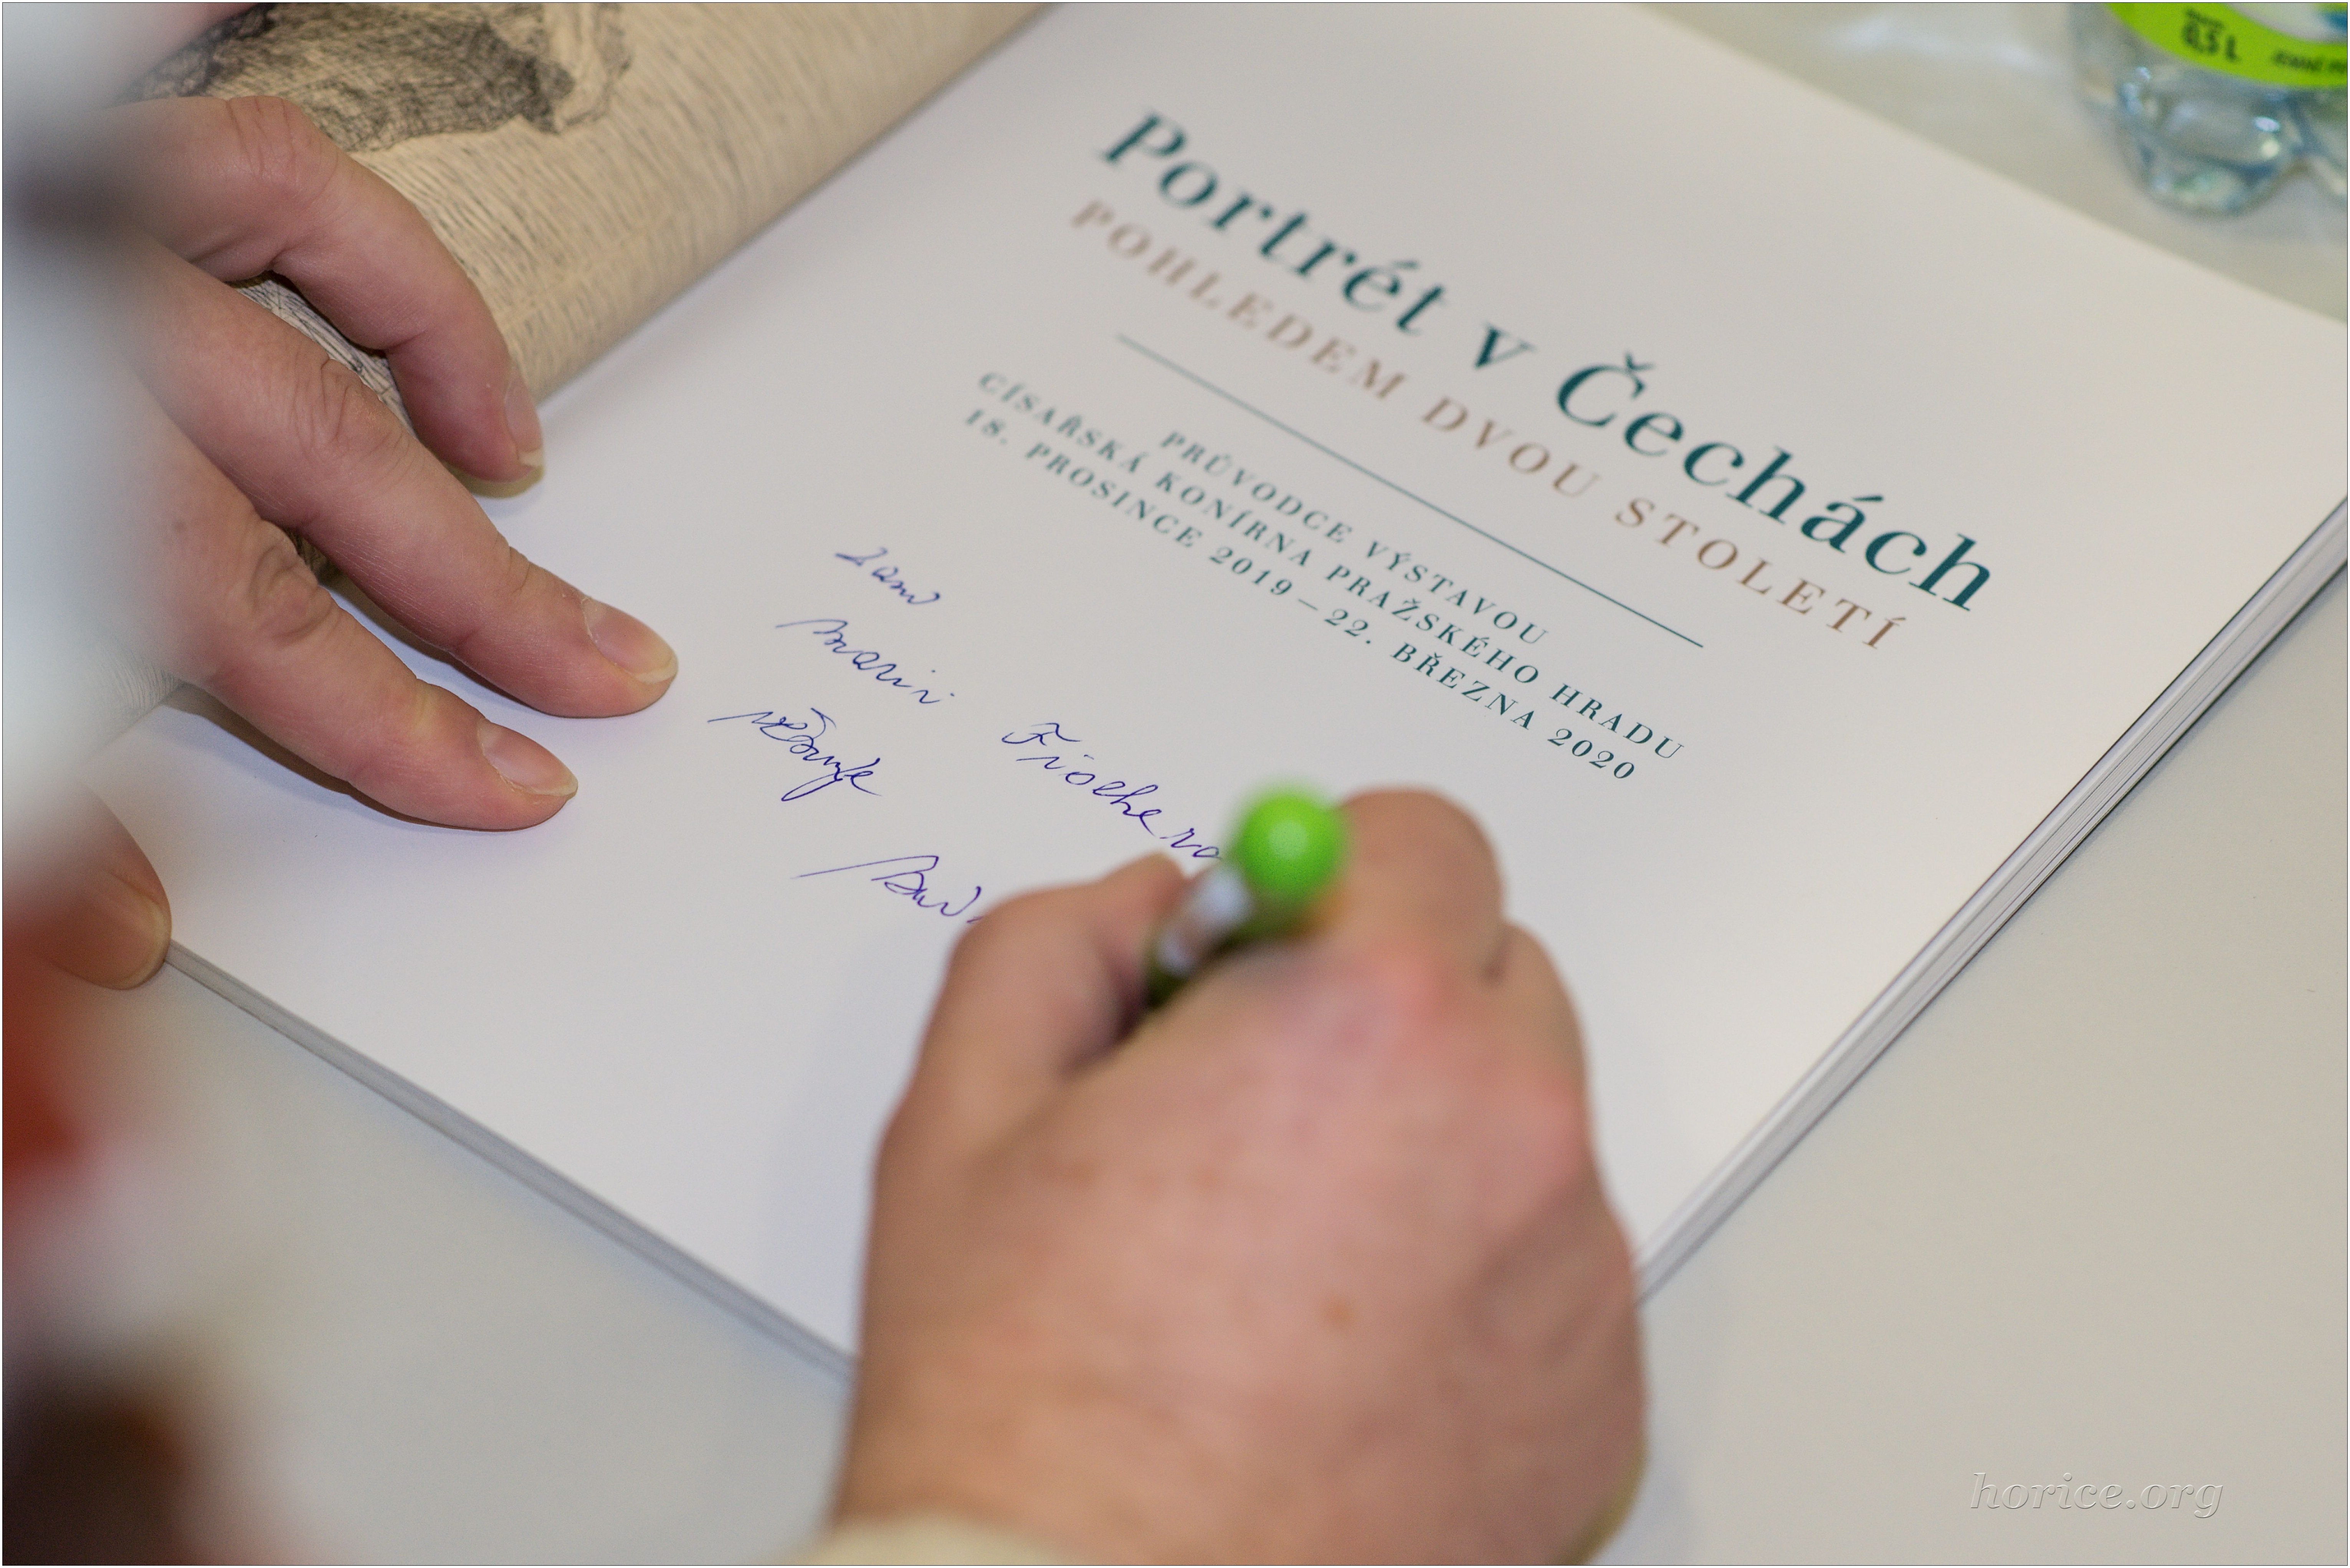 Portrét v Čechách
POHLEDEM DVOU STOLETÍ
PRŮVODCE VÝSTAVOU
CÍSAŘSKÁ KONÍRNA PRAŽSKÉHO HRADU
18. PROSINCE 2019 – 22. BŘEZNA 2020
0,5 L
horice.org